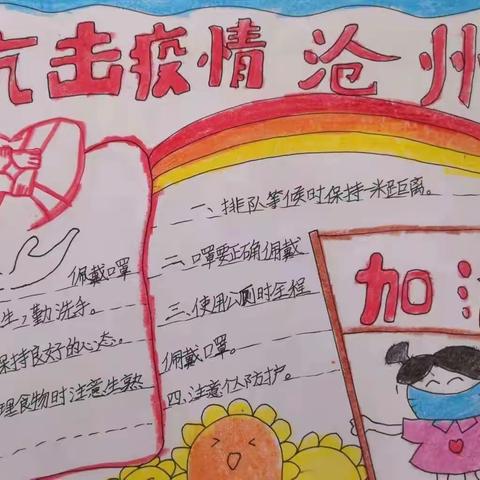 抗击疫情 沧州
佩戴口罩
生，勤洗手。
保持良好的心态。
理食物时注意生熟
一、排队等候时保持一米距离。
二、口罩要正确佩戴
三、使用公厕时全程
佩戴口罩。
四、注意个人防护。
加油